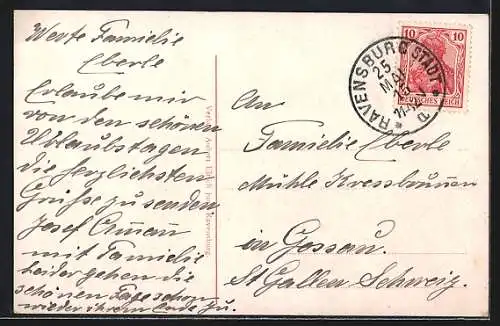 Werte Familie
Eberle
Erlaube mir
von den schönen
Urlaubstagen
die herzlichsten
Grüße zu senden
Josef
mit Familie
leider gehen die
schönen Tage schon
wieder ihrem Ende zu.
An
Familie Eberle
Mühle Kressbrunnen
in Gossau.
St Gallen Schweiz.
RAVENSBURG STADT
25
MAI
10 10
DEUTSCHES REICH